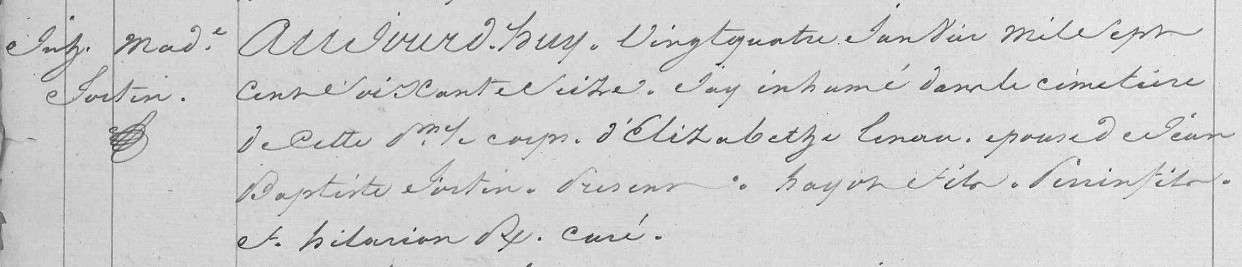 Inh. Mad.e
Fortin.
Aujourd.huy. Vingtquatre Janvier Mil Sept
Cent Soixante Seize. J'ay inhumé dans le cimetiere
de Cette pse. le corps. d'Elizabethe Lenau. epouse de Jean
Baptiste Fortin. Present :. hayot fils. Perrin fils.
et. hilarion curé.